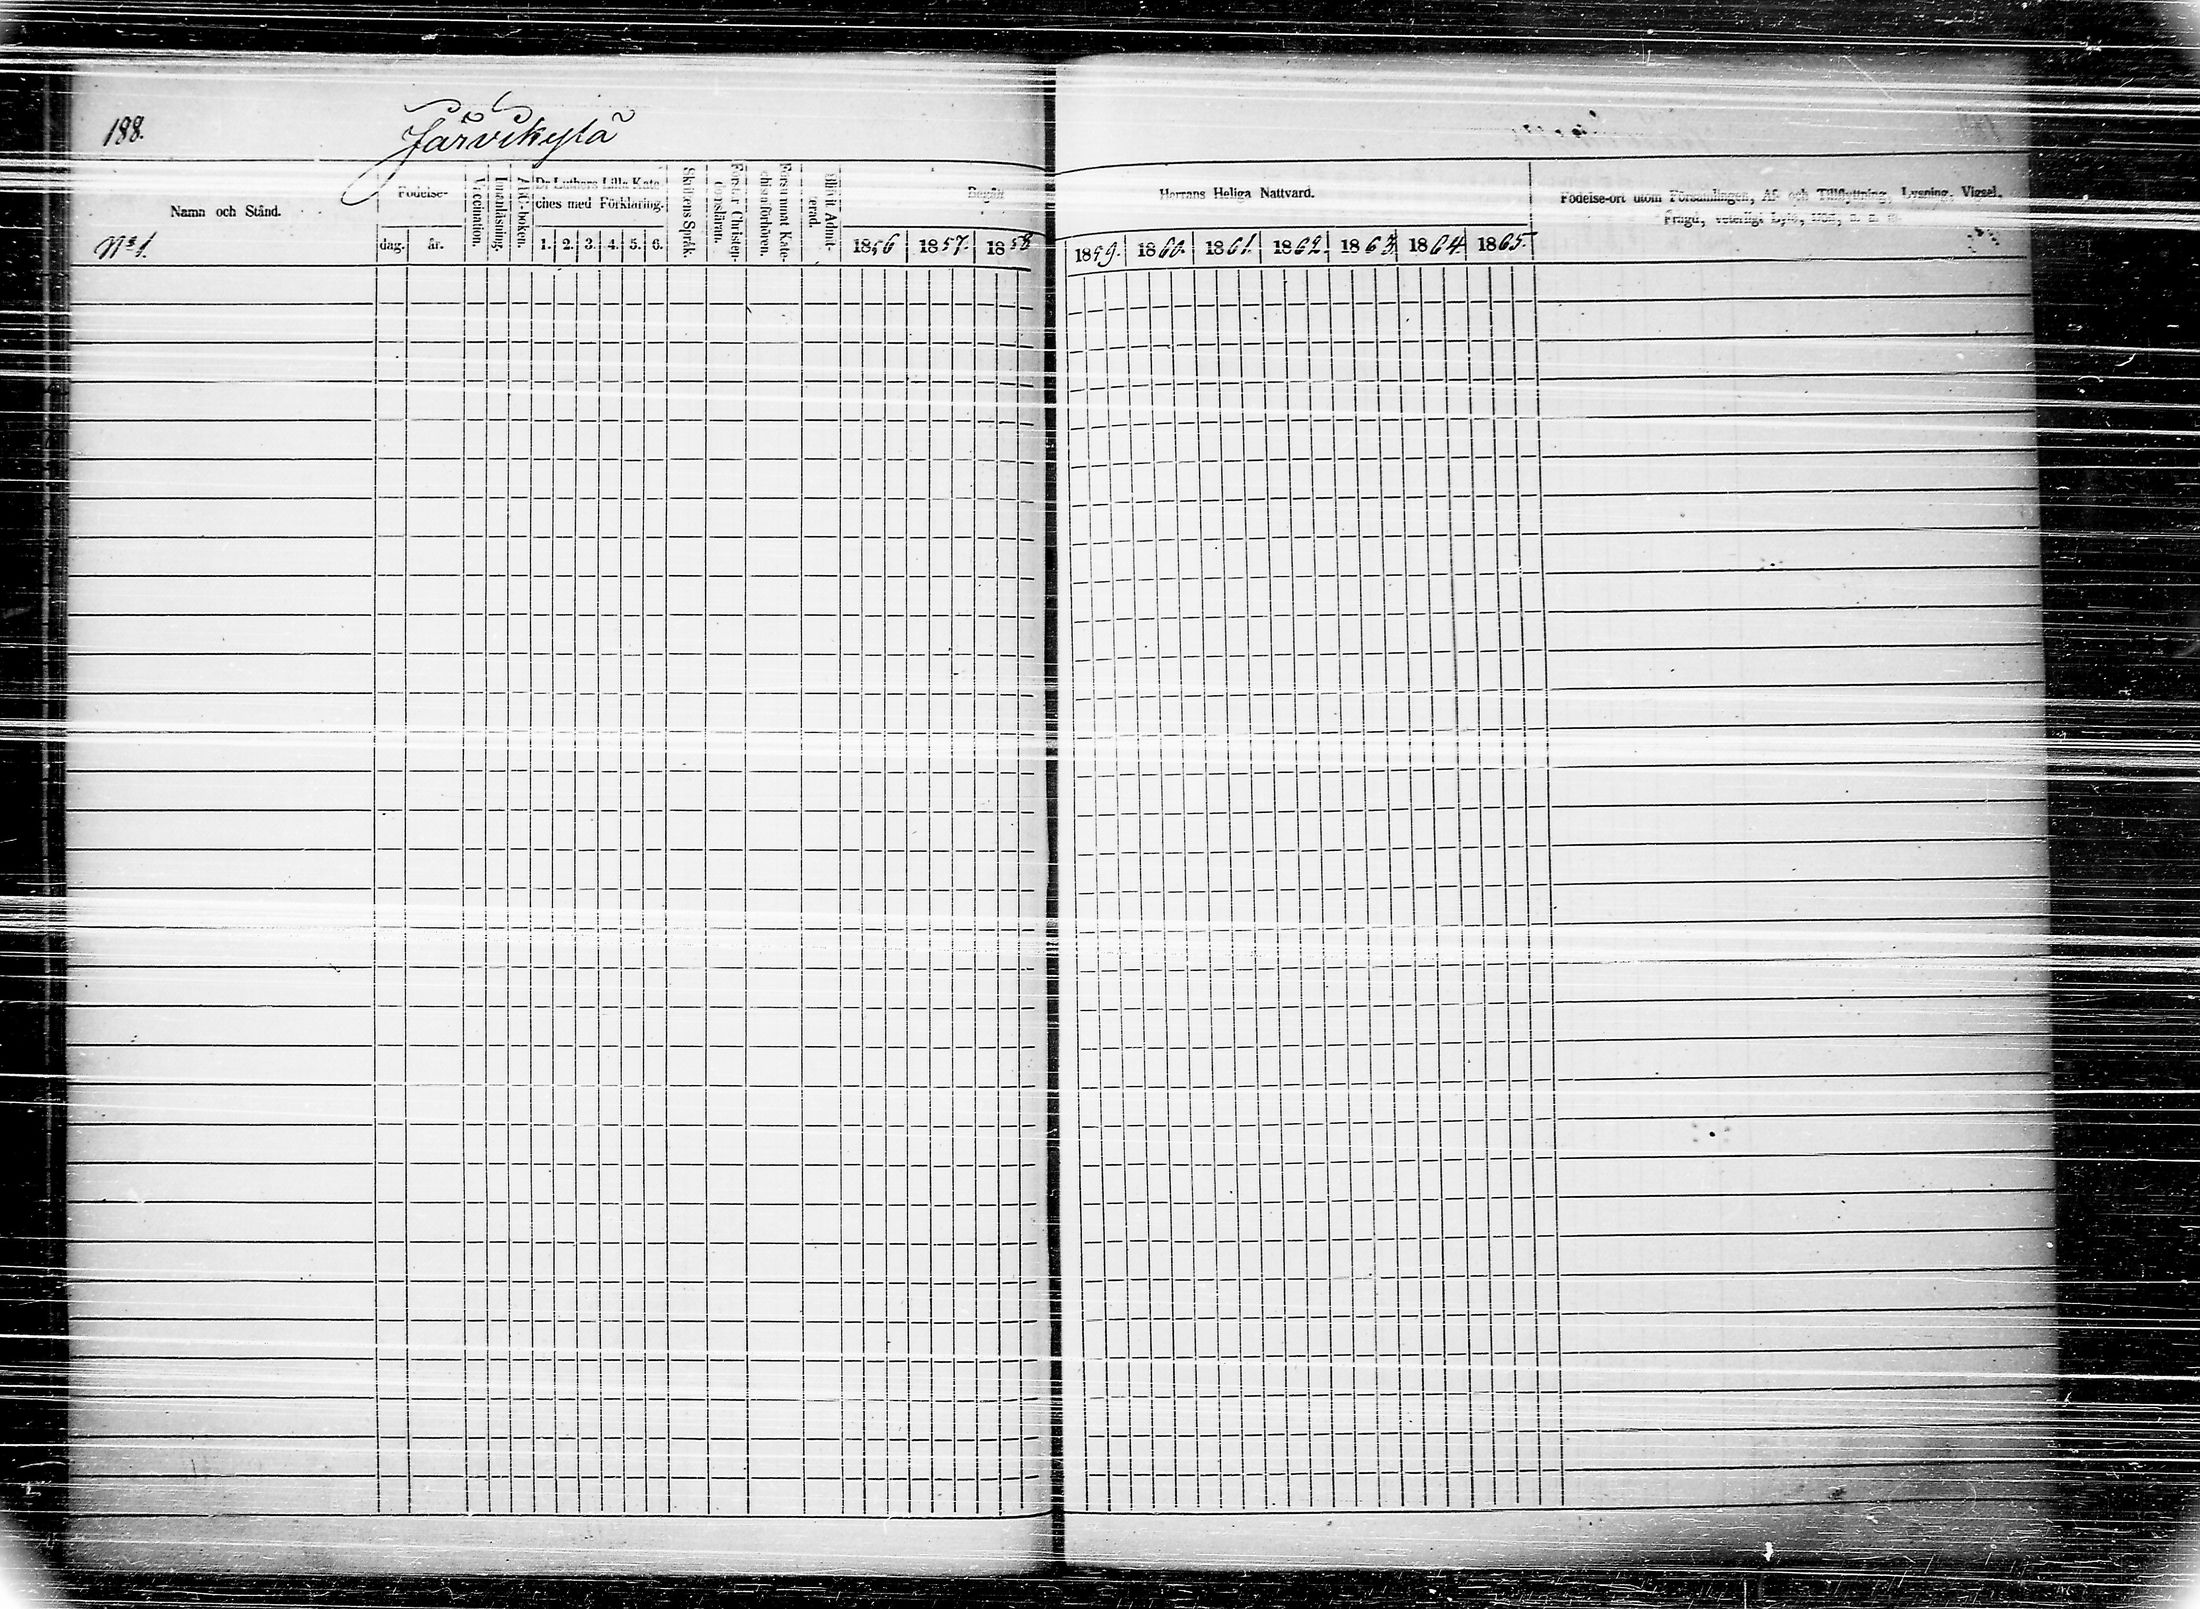 188.
Järvikylä
Namn och Stånd.
N:o 1.
Födelse-
dag. år.
Vaccination.
Innanläsning.
ABC-boken.
Dr Luthers Lilla Kate-
ches med Förklaring.
1. 2. 3. 4. 5. 6.
Skriftens Språk.
Förstår Christen-
domsläran.
Försummat Kate-
chismiförhören.
Blifvit Admit-
terad.
Begått Herrans Heliga Nattvard.
1856 1857. 1858 1859. 1860. 1861. 1862. 1863. 1864. 1865.
Födelse-ort utom Församlingen, Af- och Tillflyttning, Lysning, Vigsel,
Frägd,